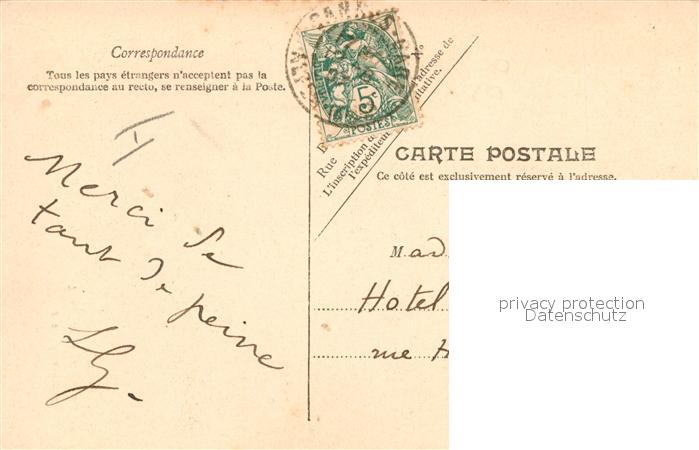 Correspondance
Tous les pays étrangers n'acceptent pas la
correspondance au recto, se renseigner à la Poste.
Merci de
tant de peine
LG.
5c
POSTES
N°
Rue
l'adresse de
L'inscription
l'expéditeur
CARTE POSTALE
Ce côté est exclusivement réservé à l'adresse.
Mad
Hotel
rue
privacy protection
Datenschutz